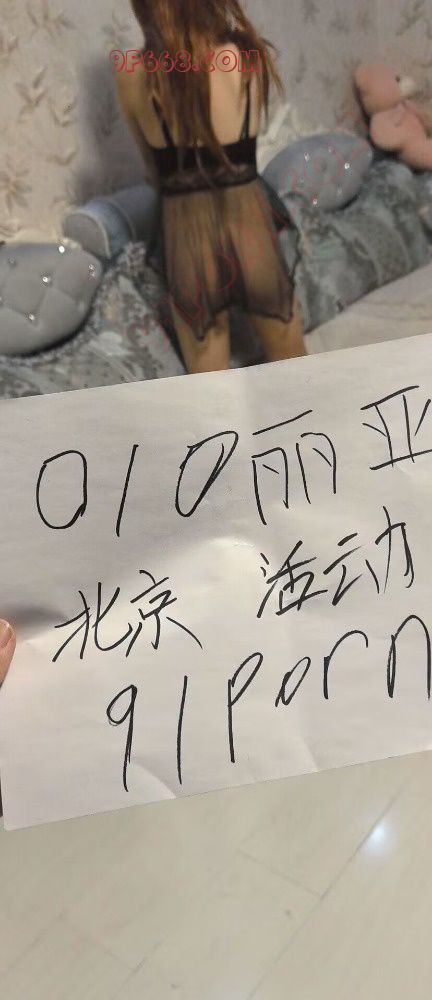 9F668.COM
010丽亚
北京 活动
91Porn